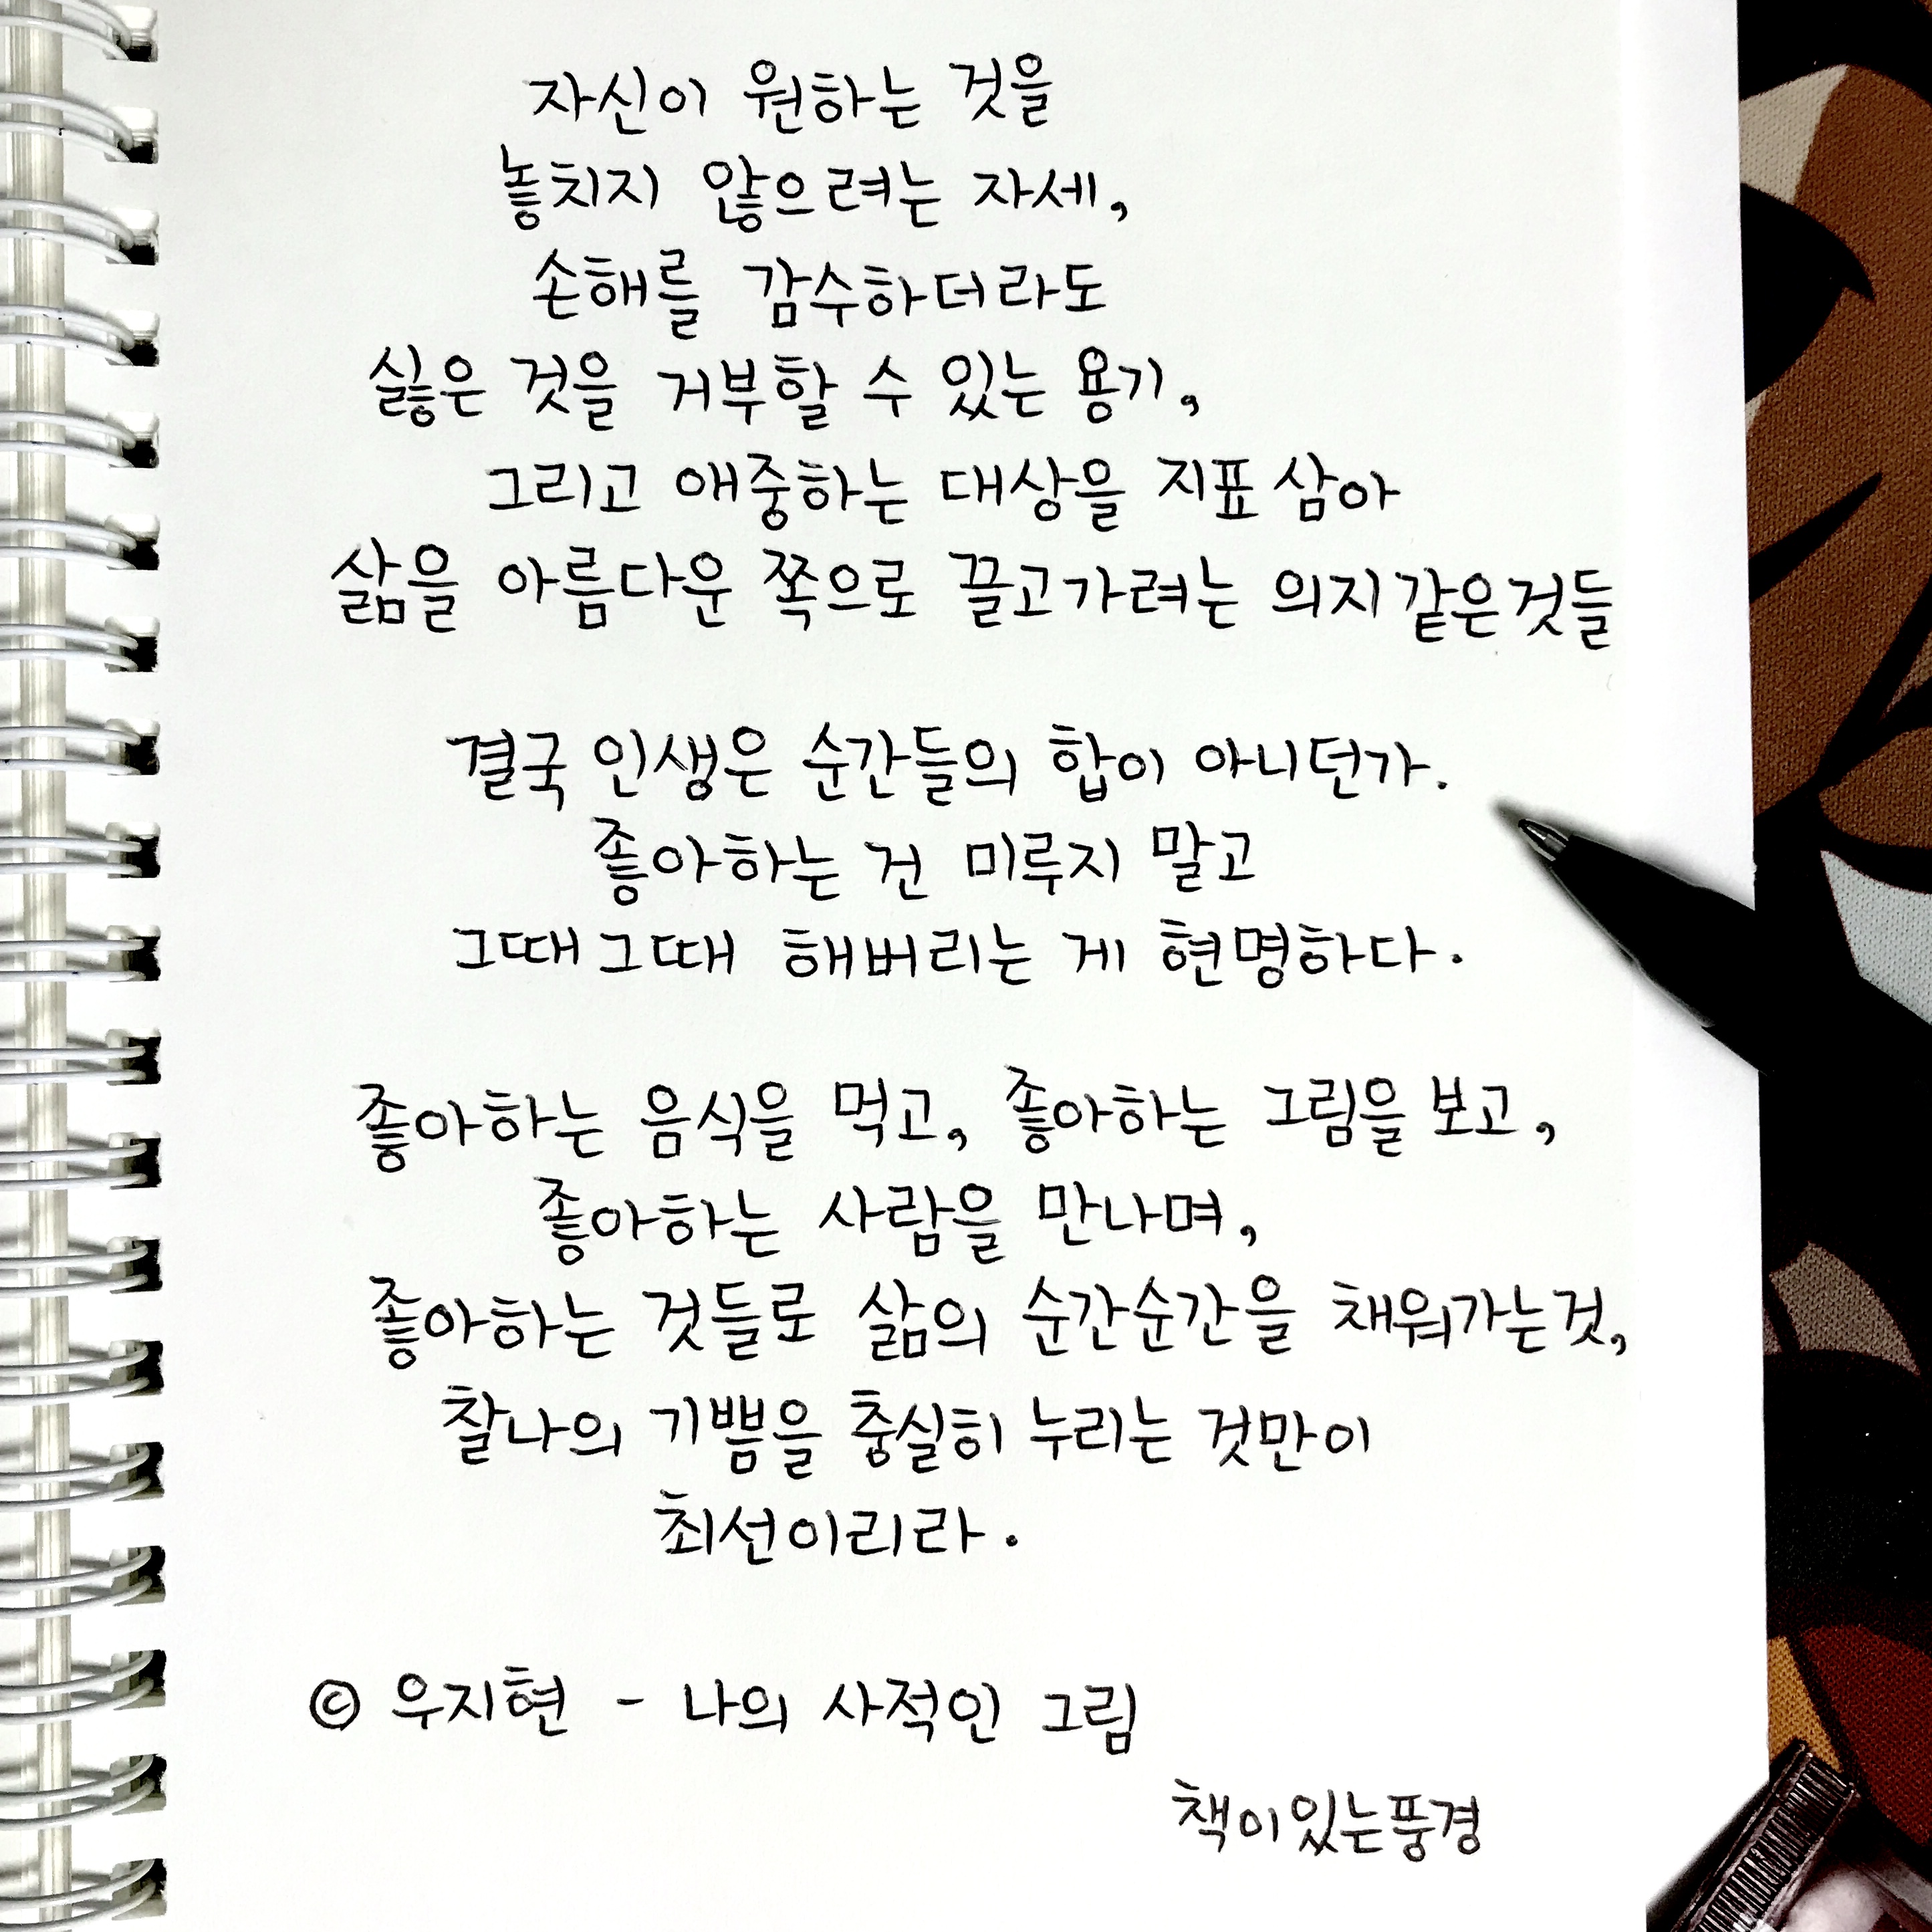 자신이 원하는 것을
놓치지 않으려는 자세,
손해를 감수하더라도
싫은 것을 거부할 수 있는 용기,
그리고 애중하는 대상을 지표 삼아
삶을 아름다운 쪽으로 끌고가려는 의지같은것들
결국 인생은 순간들의 합이 아니던가.
좋아하는 건 미루지 말고
그때그때 해버리는 게 현명하다.
좋아하는 음식을 먹고, 좋아하는 그림을 보고,
좋아하는 사람을 만나며,
좋아하는 것들로 삶의 순간순간을 채워가는것,
찰나의 기쁨을 충실히 누리는 것만이
최선이리라.
© 우지현 - 나의 사적인 그림
책이있는풍경